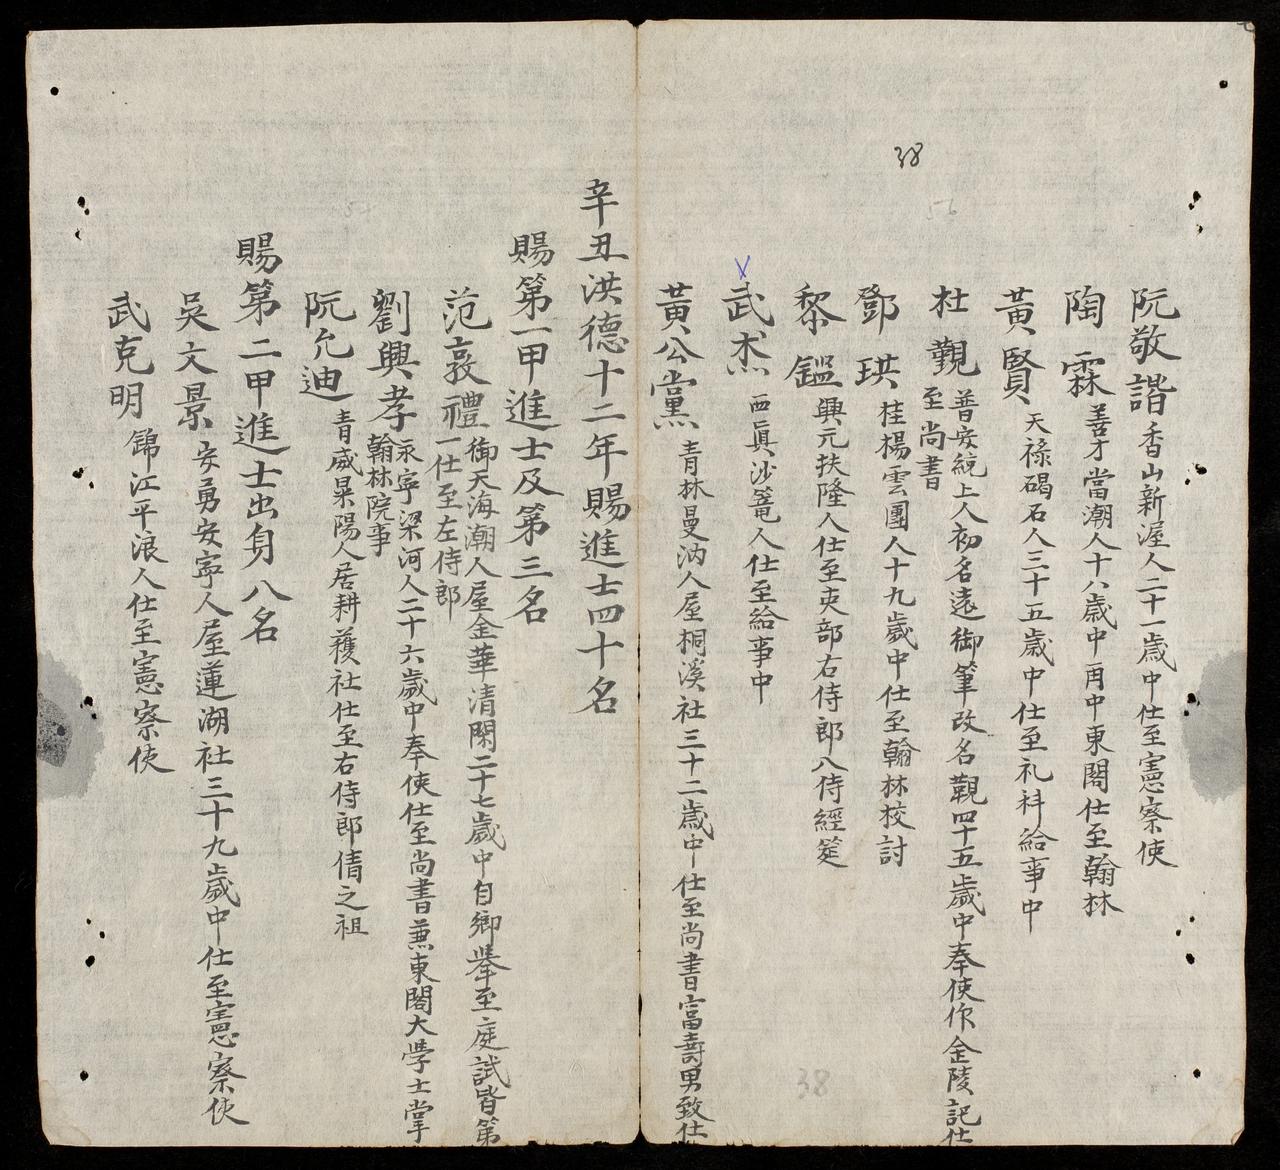 38
阮敬諧 香山新渥人二十一歲中仕至憲察使
陶霖 善才當潮人十八歲中再中東閣仕至翰林
黃賢 天祿碣石人三十五歲中仕至礼科給事中
杜覲 普安統上人初名遠御筆改名覲四十五歲中奉使作金陵記仕
至尚書
鄧珙 桂楊雲團人十九歲中仕至翰林校討
黎鑑 興元扶隆人仕至吏部右侍郎八侍經筵
武杰 西真沙篭人仕至給事中
黃公黨 青林曼汭人屋桐溪社三十二歲中仕至尚書富壽男致仕
辛丑洪德十二年賜進士四十名
賜第一甲進士及第三名
范敦禮 御天海潮人屋金華清閑二十七歲中自鄉舉至庭試皆第
一仕至左侍郎
劉興孝 永寧梁河人二十六歲中奉使仕至尚書兼東閣大學士掌
翰林院事
阮允迪 青威杲陽人居耕穫社仕至右侍郎倩之祖
賜第二甲進士出身八名
吳文景 安勇安寧人屋蓮湖社三十九歲中仕至憲察使
武克明 錦江平浪人仕至憲察使
38